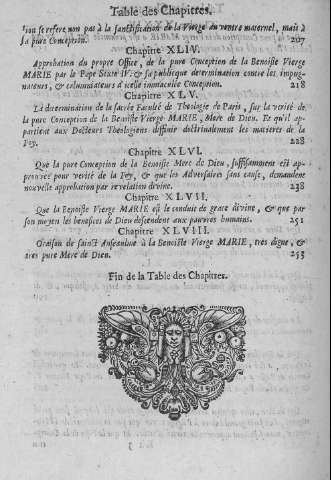 Table des Chapitres.
se refere non pas à la sanctification de la Vierge au ventre maternel, mais à
sa pure Conception. 207
Chapitre XLIV.
Approbation du propre Office, de la pure Conception de la Benoiste Vierge
MARIE par le Pape Sixte IV. & sa publique determination contre les impug-
nateurs, & calumniateurs d'icelle immaculée Conception. 218
Chapitre XLV.
La determination de la sacrée Faculté de Theologie de Paris, sur la verité de
la pure Conception de la Benoiste Vierge MARIE, Mere de Dieu. Et qu'il ap-
partient aux Docteurs Theologiens diffinir doctrinalement les matieres de la
Foy. 228
Chapitre XLVI.
Que la pure Conception de la Benoiste Mere de Dieu, suffisamment est ap-
prouvée pour verité de la Foy, & que les Adversaires sans cause, demandent
nouvelle approbation par revelation divine. 238
Chapitre XLVII.
Que la Benoiste Vierge MARIE est le conduit de grace divine, & que par
son moyen les benefices de Dieu descendent aux pauvres humains. 251
Chapitre XLVIII.
Oraison de sainct Anseaulme à la Benoiste Vierge MARIE, tres digne, &
tres pure Mere de Dieu. 255
Fin de la Table des Chapitres.